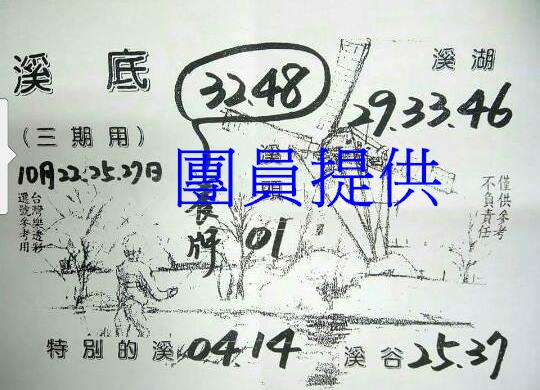 溪底
32.48
溪湖
29.33.46
(三期用)
10月22.25.27日
台灣樂透彩
選號參考用
溪頭
01
團員提供
僅供參考
不負責任
特別的溪 04.14
溪谷 25.37